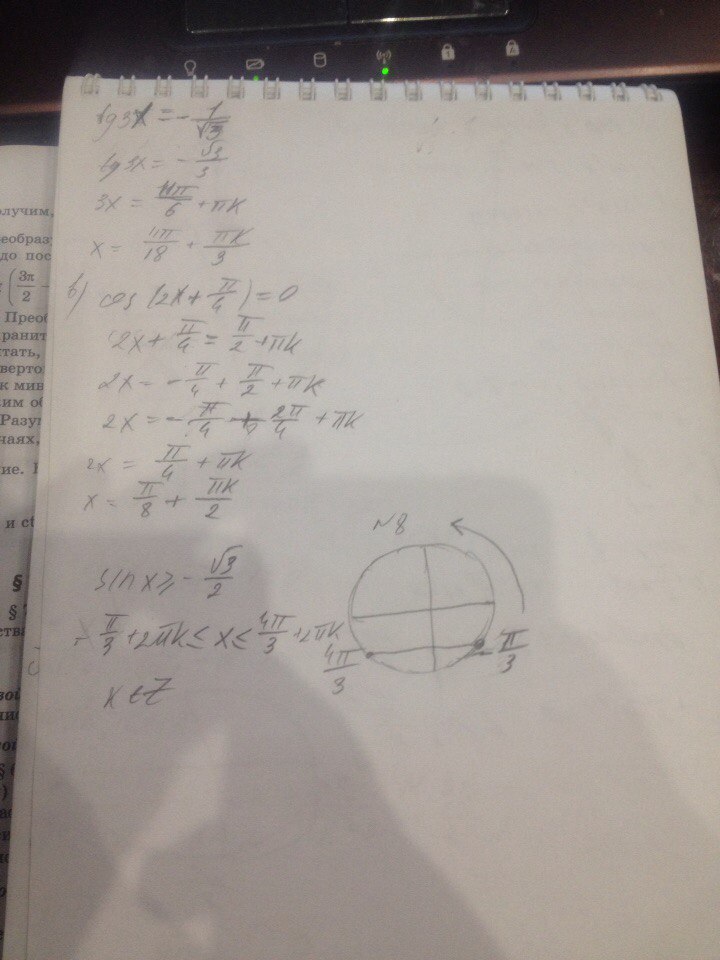 tg3x = -1/√3
tg3x = -√3/3
3x = 11π/6 + πk
x = 11π/18 + πk/3
в) cos(2x + π/4) = 0
2x + π/4 = π/2 + πk
2x = -π/4 + π/2 + πk
2x = -π/4 + 2π/4 + πk
2x = π/4 + πk
x = π/8 + πk/2
№8
sinx ≥ -√3/2
-π/3 + 2πk ≤ x ≤ 4π/3 + 2πk
4π/3
-π/3
k ∈ Z
олучим,
еобразу
до пос
(3π/2 -
Преоб
ранит
тать,
вертог
к мин
ким об
Разум
чаях,
ние. 
и ct
§
§ 7
ства